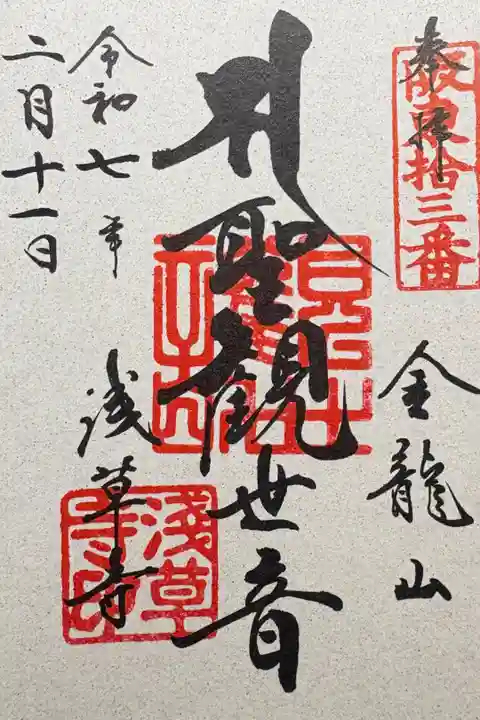 奉拝
坂東拾三番
金龍山
聖観世音
令和七年
二月十一日
浅草寺
淺草寺印